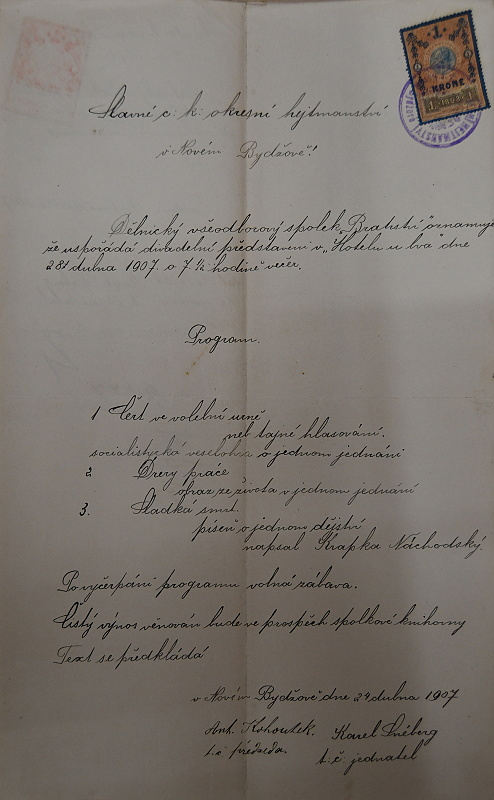 1
KRONE
1 1898 1
Slavné c: k: okresní hejtmanství
v Novém Bydžově!
Dělnický všeodborový spolek „Bratství" oznamuje
že uspořádá divadelní představení v „Hotelu u lva" dne
28ho dubna 1907 o 7 1/2 hodině večer.
Program.
1 Čert ve volební urně
neb tajné hlasování.
socialistycká veselohra o jednom jednání
2 Dcery práce
obraz ze života v jednom jednání
3. Sladká smrt.
píseň o jednom dějství
napsal Krapka Náchodský.
Po vyčerpání programu volná zábava.
Čistý výnos věnován bude ve prospěch spolkové knihovny
Text se předkládá
v Novém Bydžově dne 24 dubna 1907
Ant. Kohoutek. Karel
t. č. předseda. t. č. jednatel